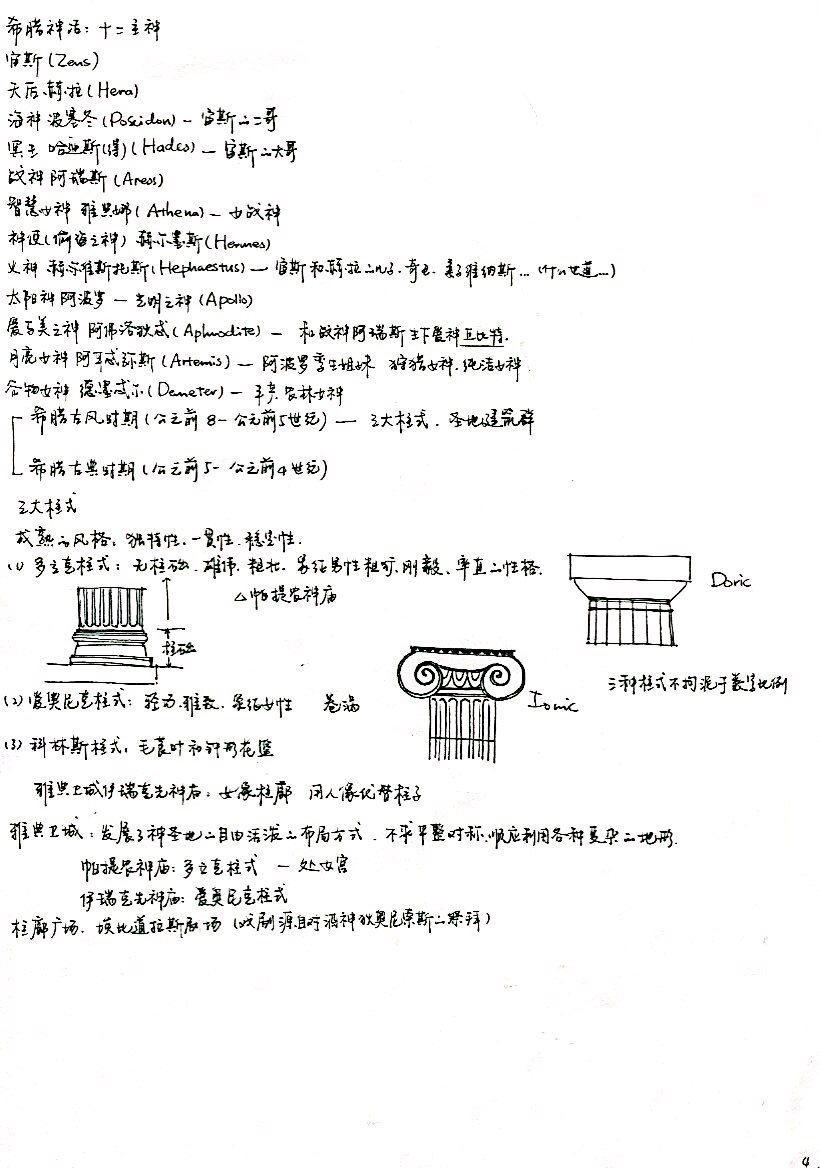 希腊神话：十二主神
宙斯(Zeus)
天后 赫拉(Hera)
海神 波塞冬(Poseidon) — 宙斯的二哥
冥王 哈迪斯(得)(Hades) — 宙斯的大哥
战神 阿瑞斯(Ares)
智慧女神 雅典娜(Athena) — 女战神
神使(偷盗之神) 赫尔墨斯(Hermes)
火神 赫尔维斯托斯(Hephaestus) — 宙斯和赫拉的儿子.奇丑.妻子维纳斯…
太阳神 阿波罗 — 光明之神(Apollo)
爱与美之神 阿佛洛狄忒(Aphrodite) — 和战神阿瑞斯生下爱神丘比特.
月亮女神 阿耳忒弥斯(Artemis) — 阿波罗孪生姐妹 狩猎女神.纯洁女神
谷物女神 德墨忒尔(Demeter) — 丰产.农林女神
希腊古风时期(公元前8-公元前5世纪) — 三大柱式.圣地建筑群
希腊古典时期(公元前5-公元前4世纪)
三大柱式
成熟的风格：独特性.一贯性.稳定性.
(1) 多立克柱式：无柱础.雄伟.粗壮.象征男性粗犷、刚毅、率直的性格.
△帕提农神庙
Doric
柱础
三种柱式不拘泥于数学比例
(2) 爱奥尼克柱式：轻巧.雅致.象征女性 卷涡
Ionic
(3) 科林斯柱式：毛茛叶和钟形花篮
雅典卫城伊瑞克先神庙：女像柱廊 用人像代替柱子
雅典卫城：发展了神圣地的自由活泼的布局方式.不求平整对称.顺应利用各种复杂的地形.
帕提农神庙：多立克柱式 — 处女宫
伊瑞克先神庙：爱奥尼克柱式
柱廊广场.埃比道拉斯剧场(戏剧源自对酒神狄奥尼索斯的崇拜)
4